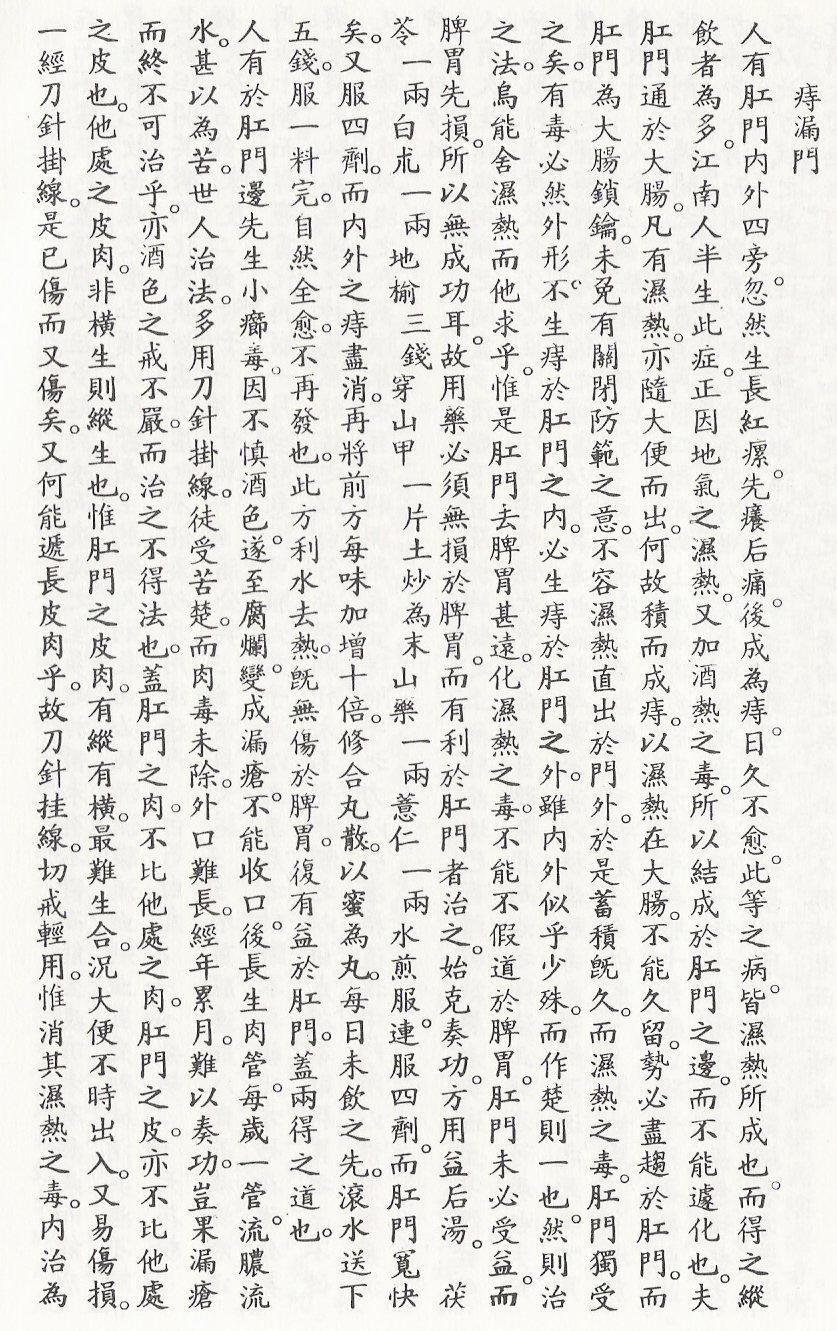 痔漏門
人有肛門內外四旁。忽然生長紅瘰。先癢后痛。後成為痔。日久不愈。此等之病。皆濕熱所成也。而得之縱
飲者為多。江南人半生此症。正因地氣之濕熱。又加酒熱之毒。所以結成於肛門之邊。而不能遽化也。夫
肛門通於大腸。凡有濕熱。亦隨大便而出。何故積而成痔。以濕熱在大腸。不能久留。勢必盡趨於肛門。而
肛門為大腸鎖鑰。未免有關閉防範之意。不容濕熱直出於門外。於是蓄積既久。而濕熱之毒。肛門獨受
之矣。有毒必然外形。不生痔於肛門之內。必生痔於肛門之外。雖內外似乎少殊。而作楚則一也。然則治
之法。烏能舍濕熱而他求乎。惟是肛門去脾胃甚遠。化濕熱之毒。不能不假道於脾胃。肛門未必受益。而
脾胃先損。所以無成功耳。故用藥必須無損於脾胃。而有利於肛門者治之。始克奏功。方用益后湯。 茯
苓一兩 白朮一兩 地榆三錢 穿山甲一片土炒為末 山藥一兩 薏仁一兩 水煎服。連服四劑。而肛門寬快
矣。又服四劑。而內外之痔盡消。再將前方每味加增十倍。修合丸散。以蜜為丸。每日未飲之先。滾水送下
五錢。服一料完。自然全愈。不再發也。此方利水去熱。既無傷於脾胃。復有益於肛門。蓋兩得之道也。
人有於肛門邊先生小癤毒。因不慎酒色。遂至腐爛。變成漏瘡。不能收口。後長生肉管。每歲一管。流膿流
水。甚以為苦。世人治法。多用刀針掛線。徒受苦楚。而肉毒未除。外口難長。經年累月。難以奏功。豈果漏瘡
而終不可治乎。亦酒色之戒不嚴。而治之不得法也。蓋肛門之肉。不比他處之肉。肛門之皮。亦不比他處
之皮也。他處之皮肉。非橫生則縱生也。惟肛門之皮肉。有縱有橫。最難生合。況大便不時出入。又易傷損。
一經刀針掛線。是已傷而又傷矣。又何能遽長皮肉乎。故刀針挂線。切戒輕用。惟消其濕熱之毒。內治為